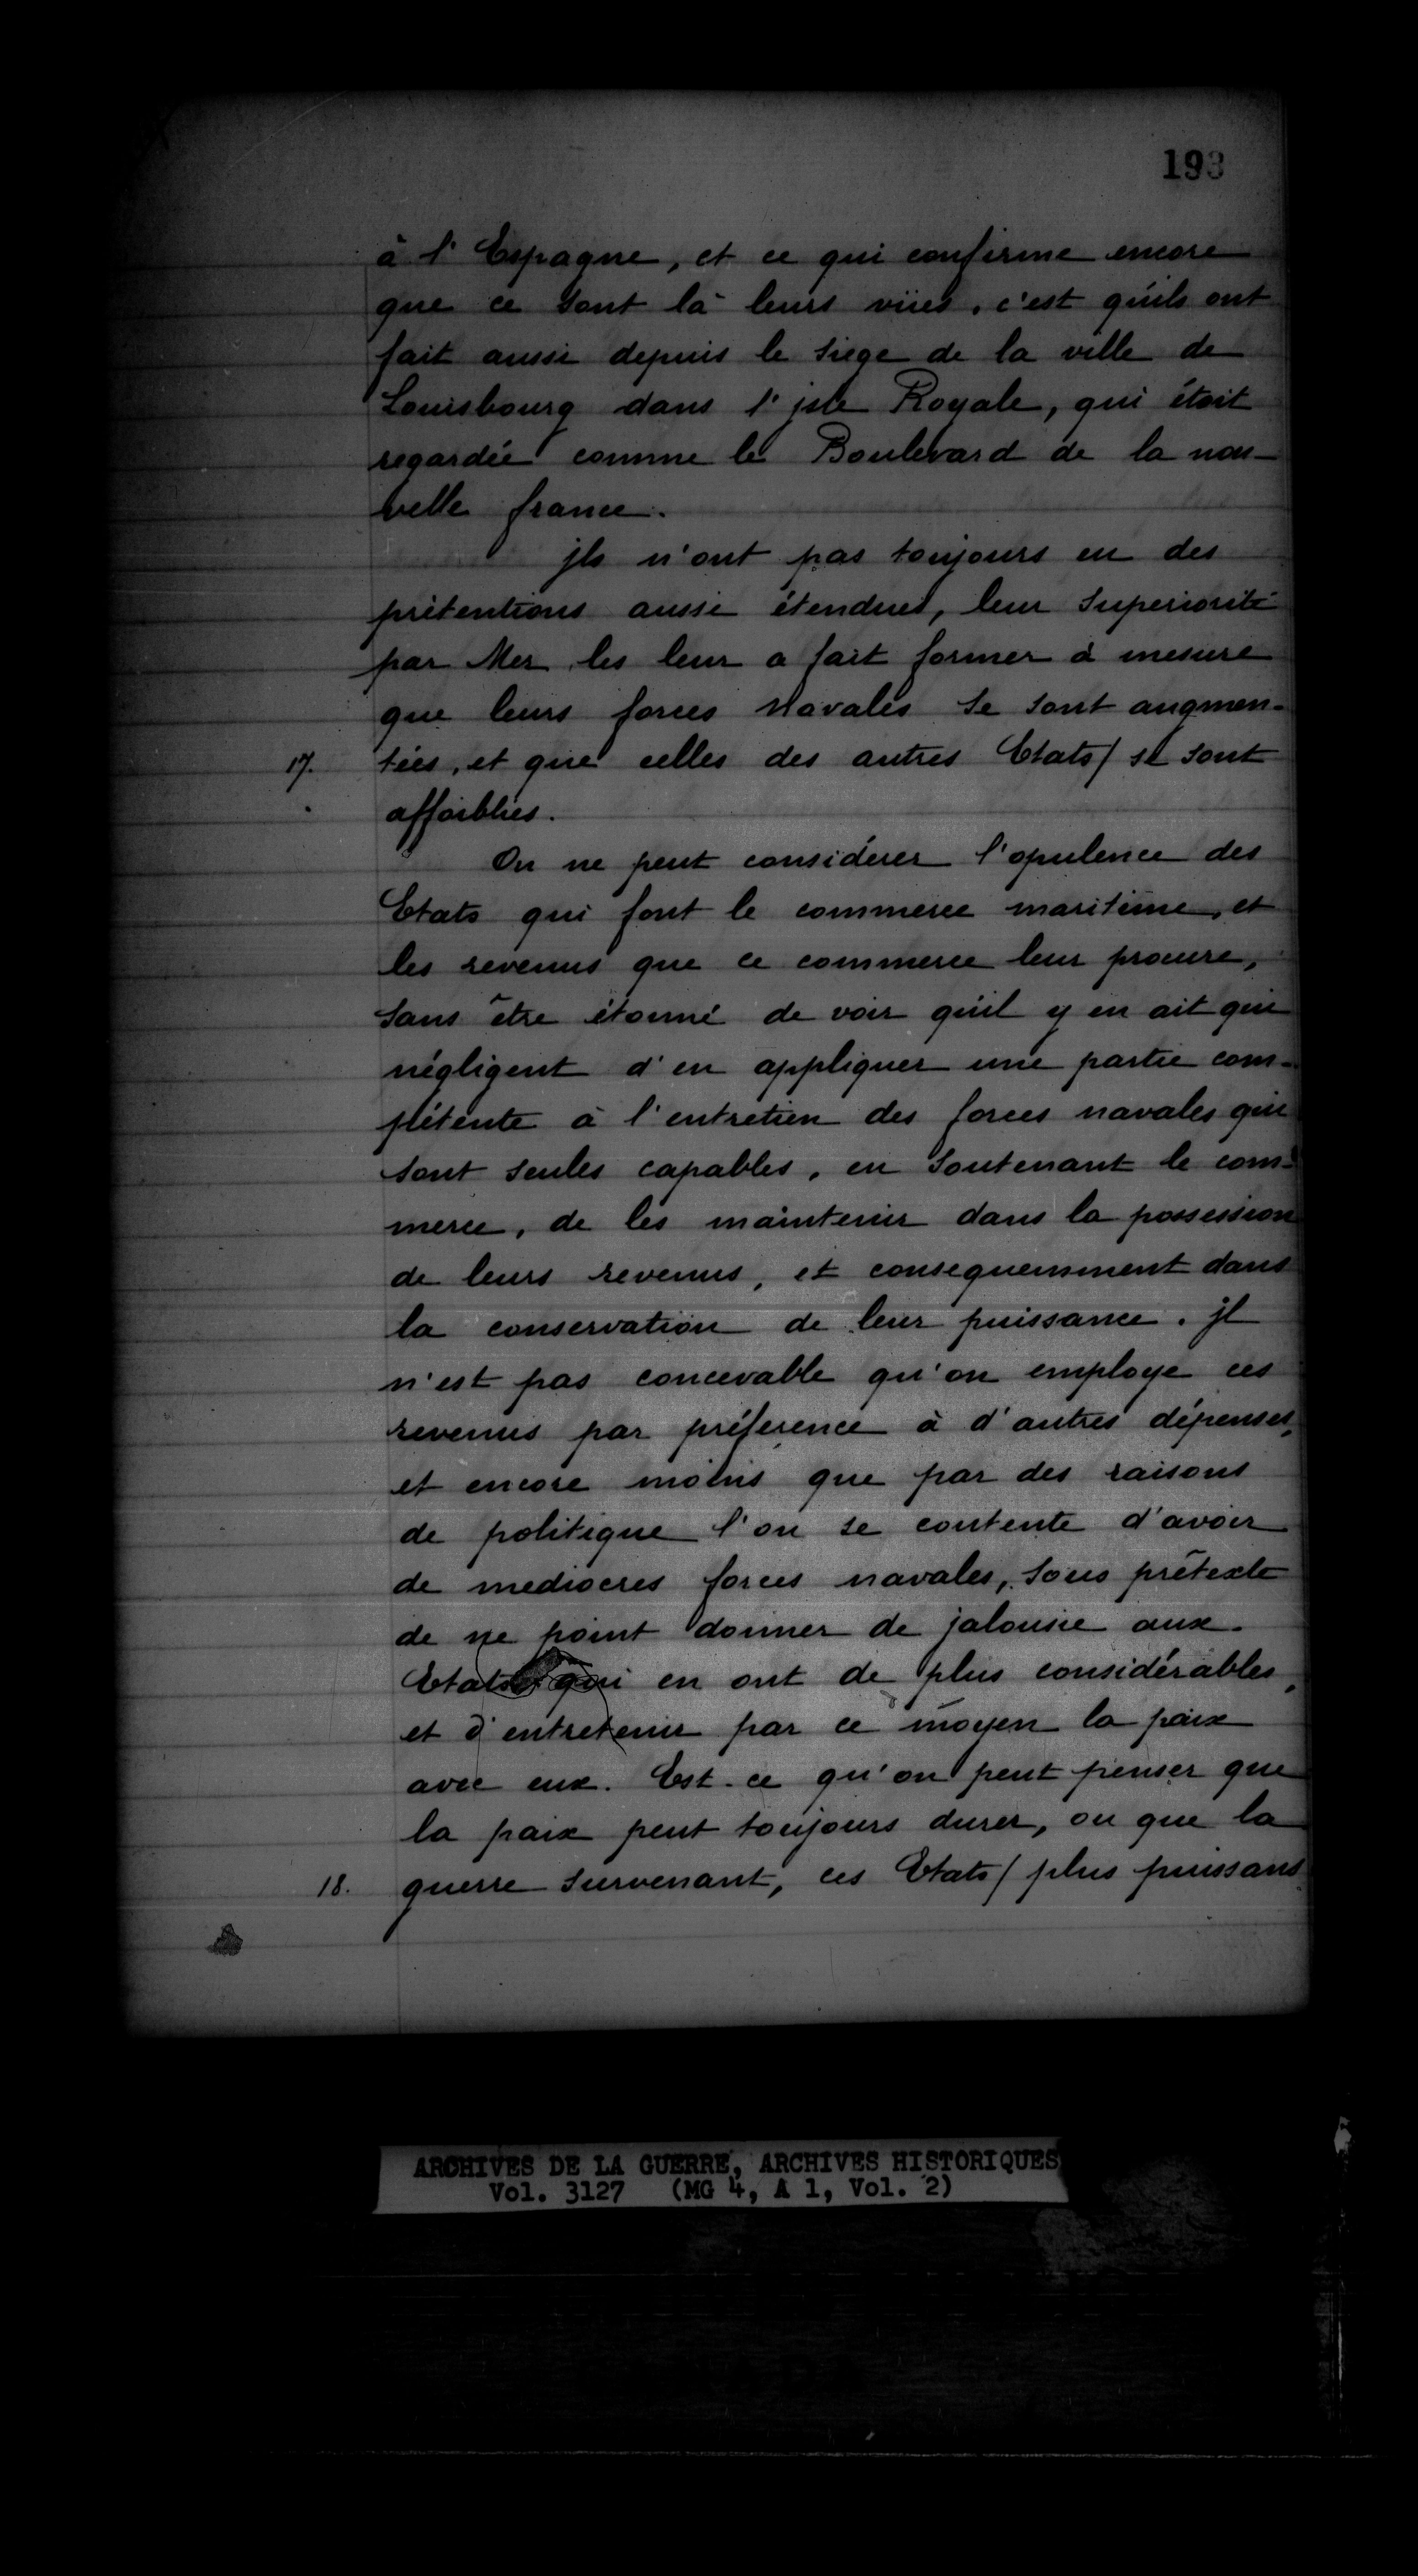 193
à l'Espagne, et ce qui confirme encore
que ce sont là leurs vües, c'est qu'ils ont
fait aussi depuis le siege de la ville de
Louisbourg dans l'jsle Royale, qui étoit
regardée comme le Boulevard de la nou-
velle france.
jls n'ont pas toujours eu des
prétentions aussi étendues, leur Superiorité
par Mer les leur a fait former à mesure
que leurs forces Navales se sont augmen-
17. tées, et que celles des autres Etats/ se sont
affoiblies.
On ne peut considérer l'opulence des
Etats qui font le commerce maritime, et
les revenus que ce commerce leur procure,
sans être étonné de voir qu'il y en ait qui
négligent d'en appliquer une partie com-
pétente à l'entretien des forces navales qui
sont seules capables, en soutenant le com-
merce, de les maintenir dans la possession
de leurs revenus, et consequemment dans
la conservation de leur puissance. jl
n'est pas concevable qu'on employe ces
revenus par préference à d'autres dépenses,
et encore moins que par des raisons
de politique l'on se contente d'avoir
de mediocres forces navales, sous prétexte
de ne point donner de jalousie aux
Etats qui en ont de plus considérables,
et d'entretenir par ce moyen la paix
avec eux. Est-ce qu'on peut penser que
la paix peut toujours durer, ou que la
18. guerre survenant, ces Etats/ plus puissans
ARCHIVES DE LA GUERRE, ARCHIVES HISTORIQUES
Vol. 3127 (MG 4, A 1, Vol. 2)